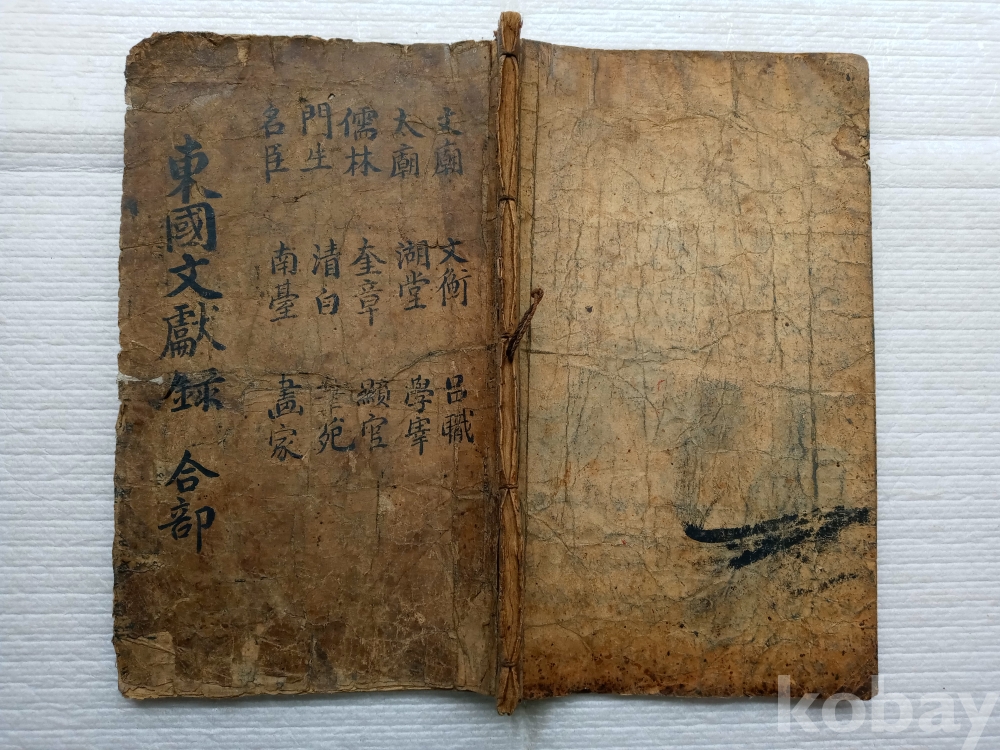 文廟 文衡 呂職
太廟 湖堂 學宰
儒林 奎章 顯官
門生 清白 筆苑
名臣 南臺 畵家
東國文獻錄 合部
kobay